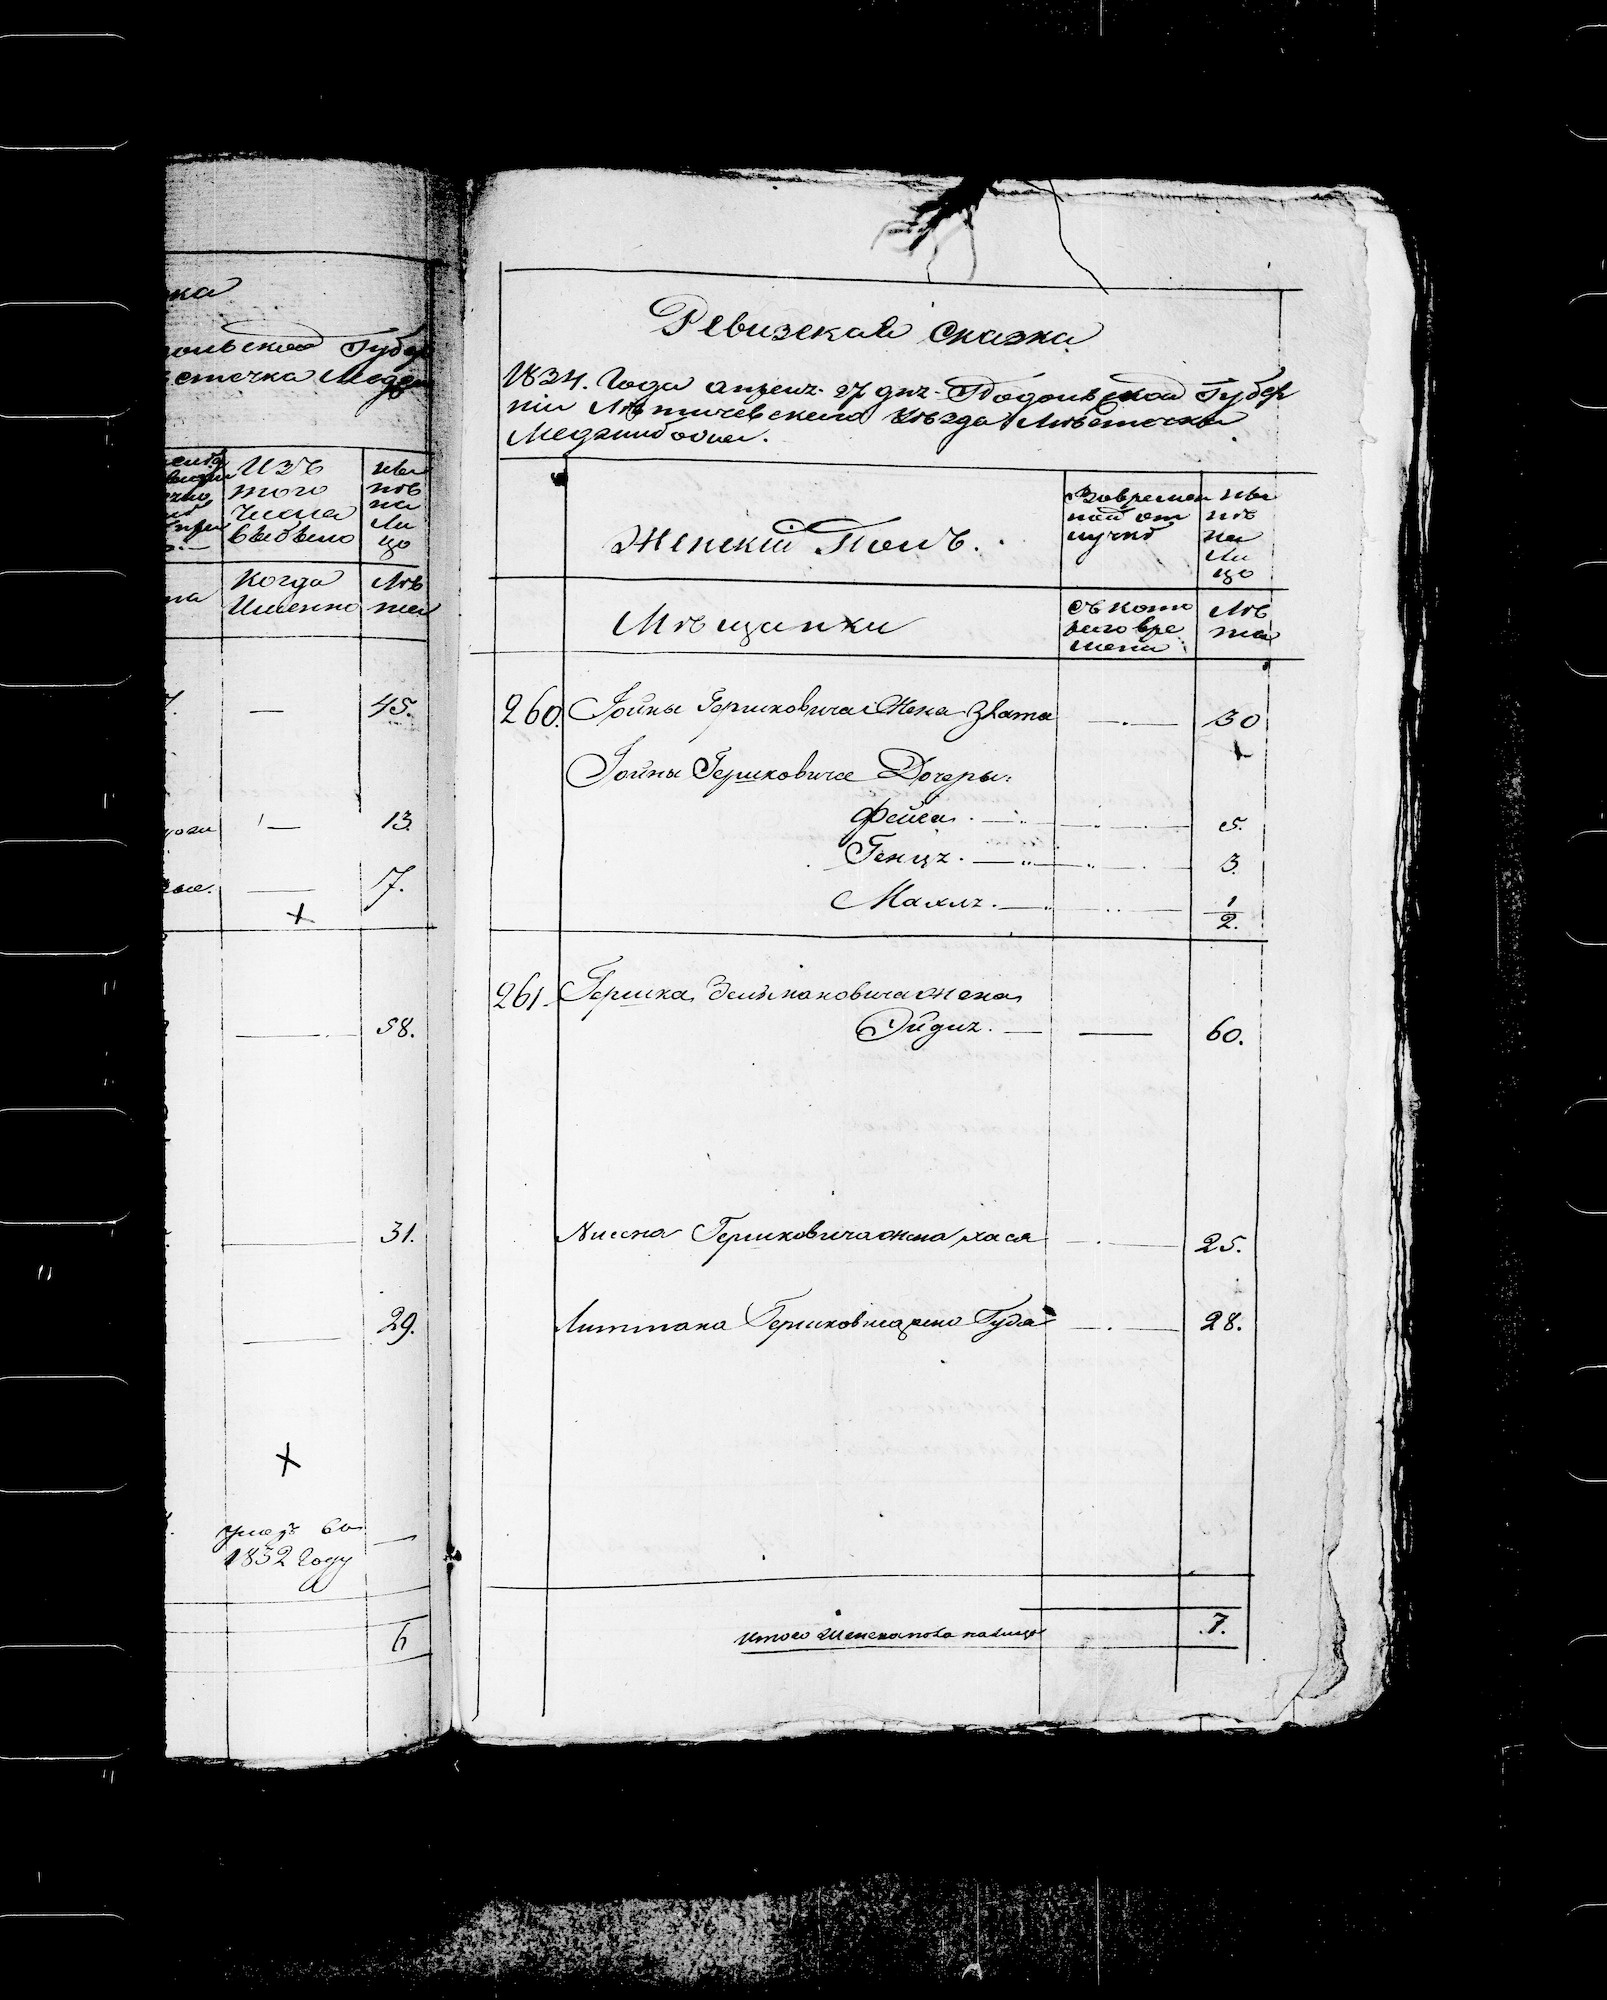 ка
ольской Губер
стечка Медж
Изъ
того
числа
выбыло
ны
нѣ
на
ли
цо
Когда
Именно
Лѣ
та
45.
13.
17.
58.
31.
29.
во
1832 Году
6
Ревизская Сказка
1834. Года апреля 27 дня Подольской Губер
ніи Лѣтичевскаго Уѣзда Мѣстечка
Меджибожа.
Женскій Полъ.
Вовремен
ной от
лучкѣ
ны
нѣ
на
ли
цо
Мѣщанки
съ кото
раго вре
мени
Лѣ
та
260. Іойны Гершковича Жена Злата 30
Іойны Гершковича Дочеры:
Фейга 5.
Генця. 3.
Махля. 1/2.
261. Гершка Зельмановича жена
Эйдля. 60.
Нисена Гершковича жена Хася 25.
Литмана Гершковича жена Гуда 28.
Итого Женска пола налицо 7.